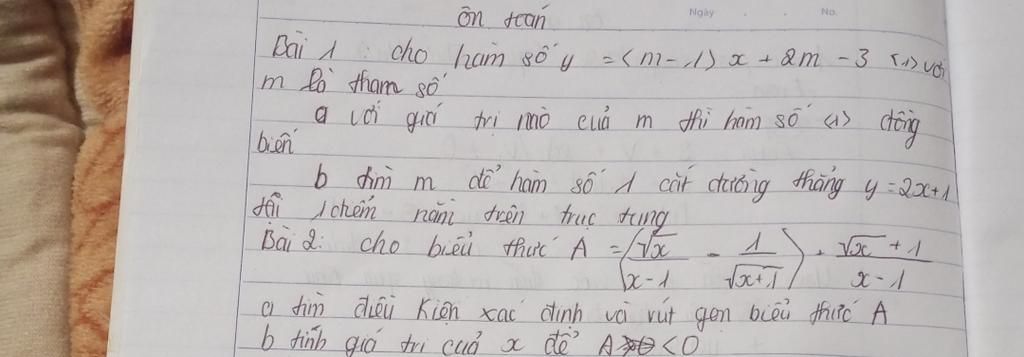 Ngày No.
ôn toán
Bài 1 : cho hàm số y = (m-1) x + 2m - 3 (1) với
m là tham số
a với giá trị nào của m thì hàm số (1) đồng
biến
b tìm m để hàm số 1 cắt đường thẳng y = 2x+1
tại 1 điểm nằm trên trục tung
Bài 2: cho biểu thức A = (√x/(x-1) - 1/√(x+1)) . (√x + 1)/(x-1)
a tìm điều kiện xác định và rút gọn biểu thức A
b tính giá trị của x để A < 0